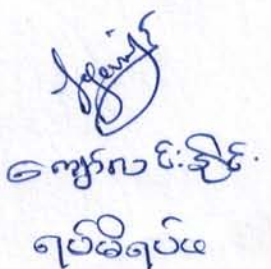 ကျော်လင်းနိုင်
ရပ်မိရပ်ဖ